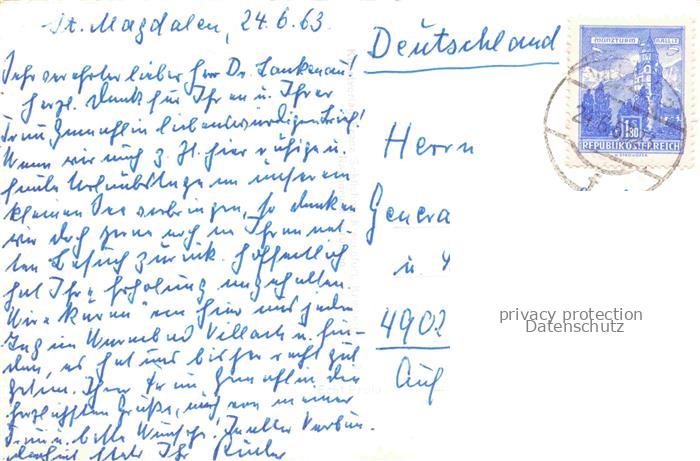 St. Magdalen, 24.6.63.
Sehr verehrter lieber Herr Dr. Lankenau!
Herzl. Dank für Ihren u. Ihrer
Frau Gemahlin liebenswürdigen Brief!
Wenn wir auch z. Zt. hier ruhige u.
Urlaubstage an unserem
kleinen See verbringen, so denken
wir doch gerne noch an Ihren net-
ten Besuch zurück. Hoffentlich
hat Ihre Erholung angehalten.
Wir "kuren" von hier aus jeden
Tag im Warmbad Villach u. fin-
den, es hat uns bisher recht gut
getan. Ihrer Frau Gemahlin die
herzlichsten Grüße, auch von meiner
Frau u. beste Wünsche! In alter Verbun-
denheit stets Ihr
Deutschland
Herrn
Genera
u
4902
Auf
MÜNZTURM HALL I.T.
1.80
REPUBLIK ÖSTERREICH
privacy protection
Datenschutz